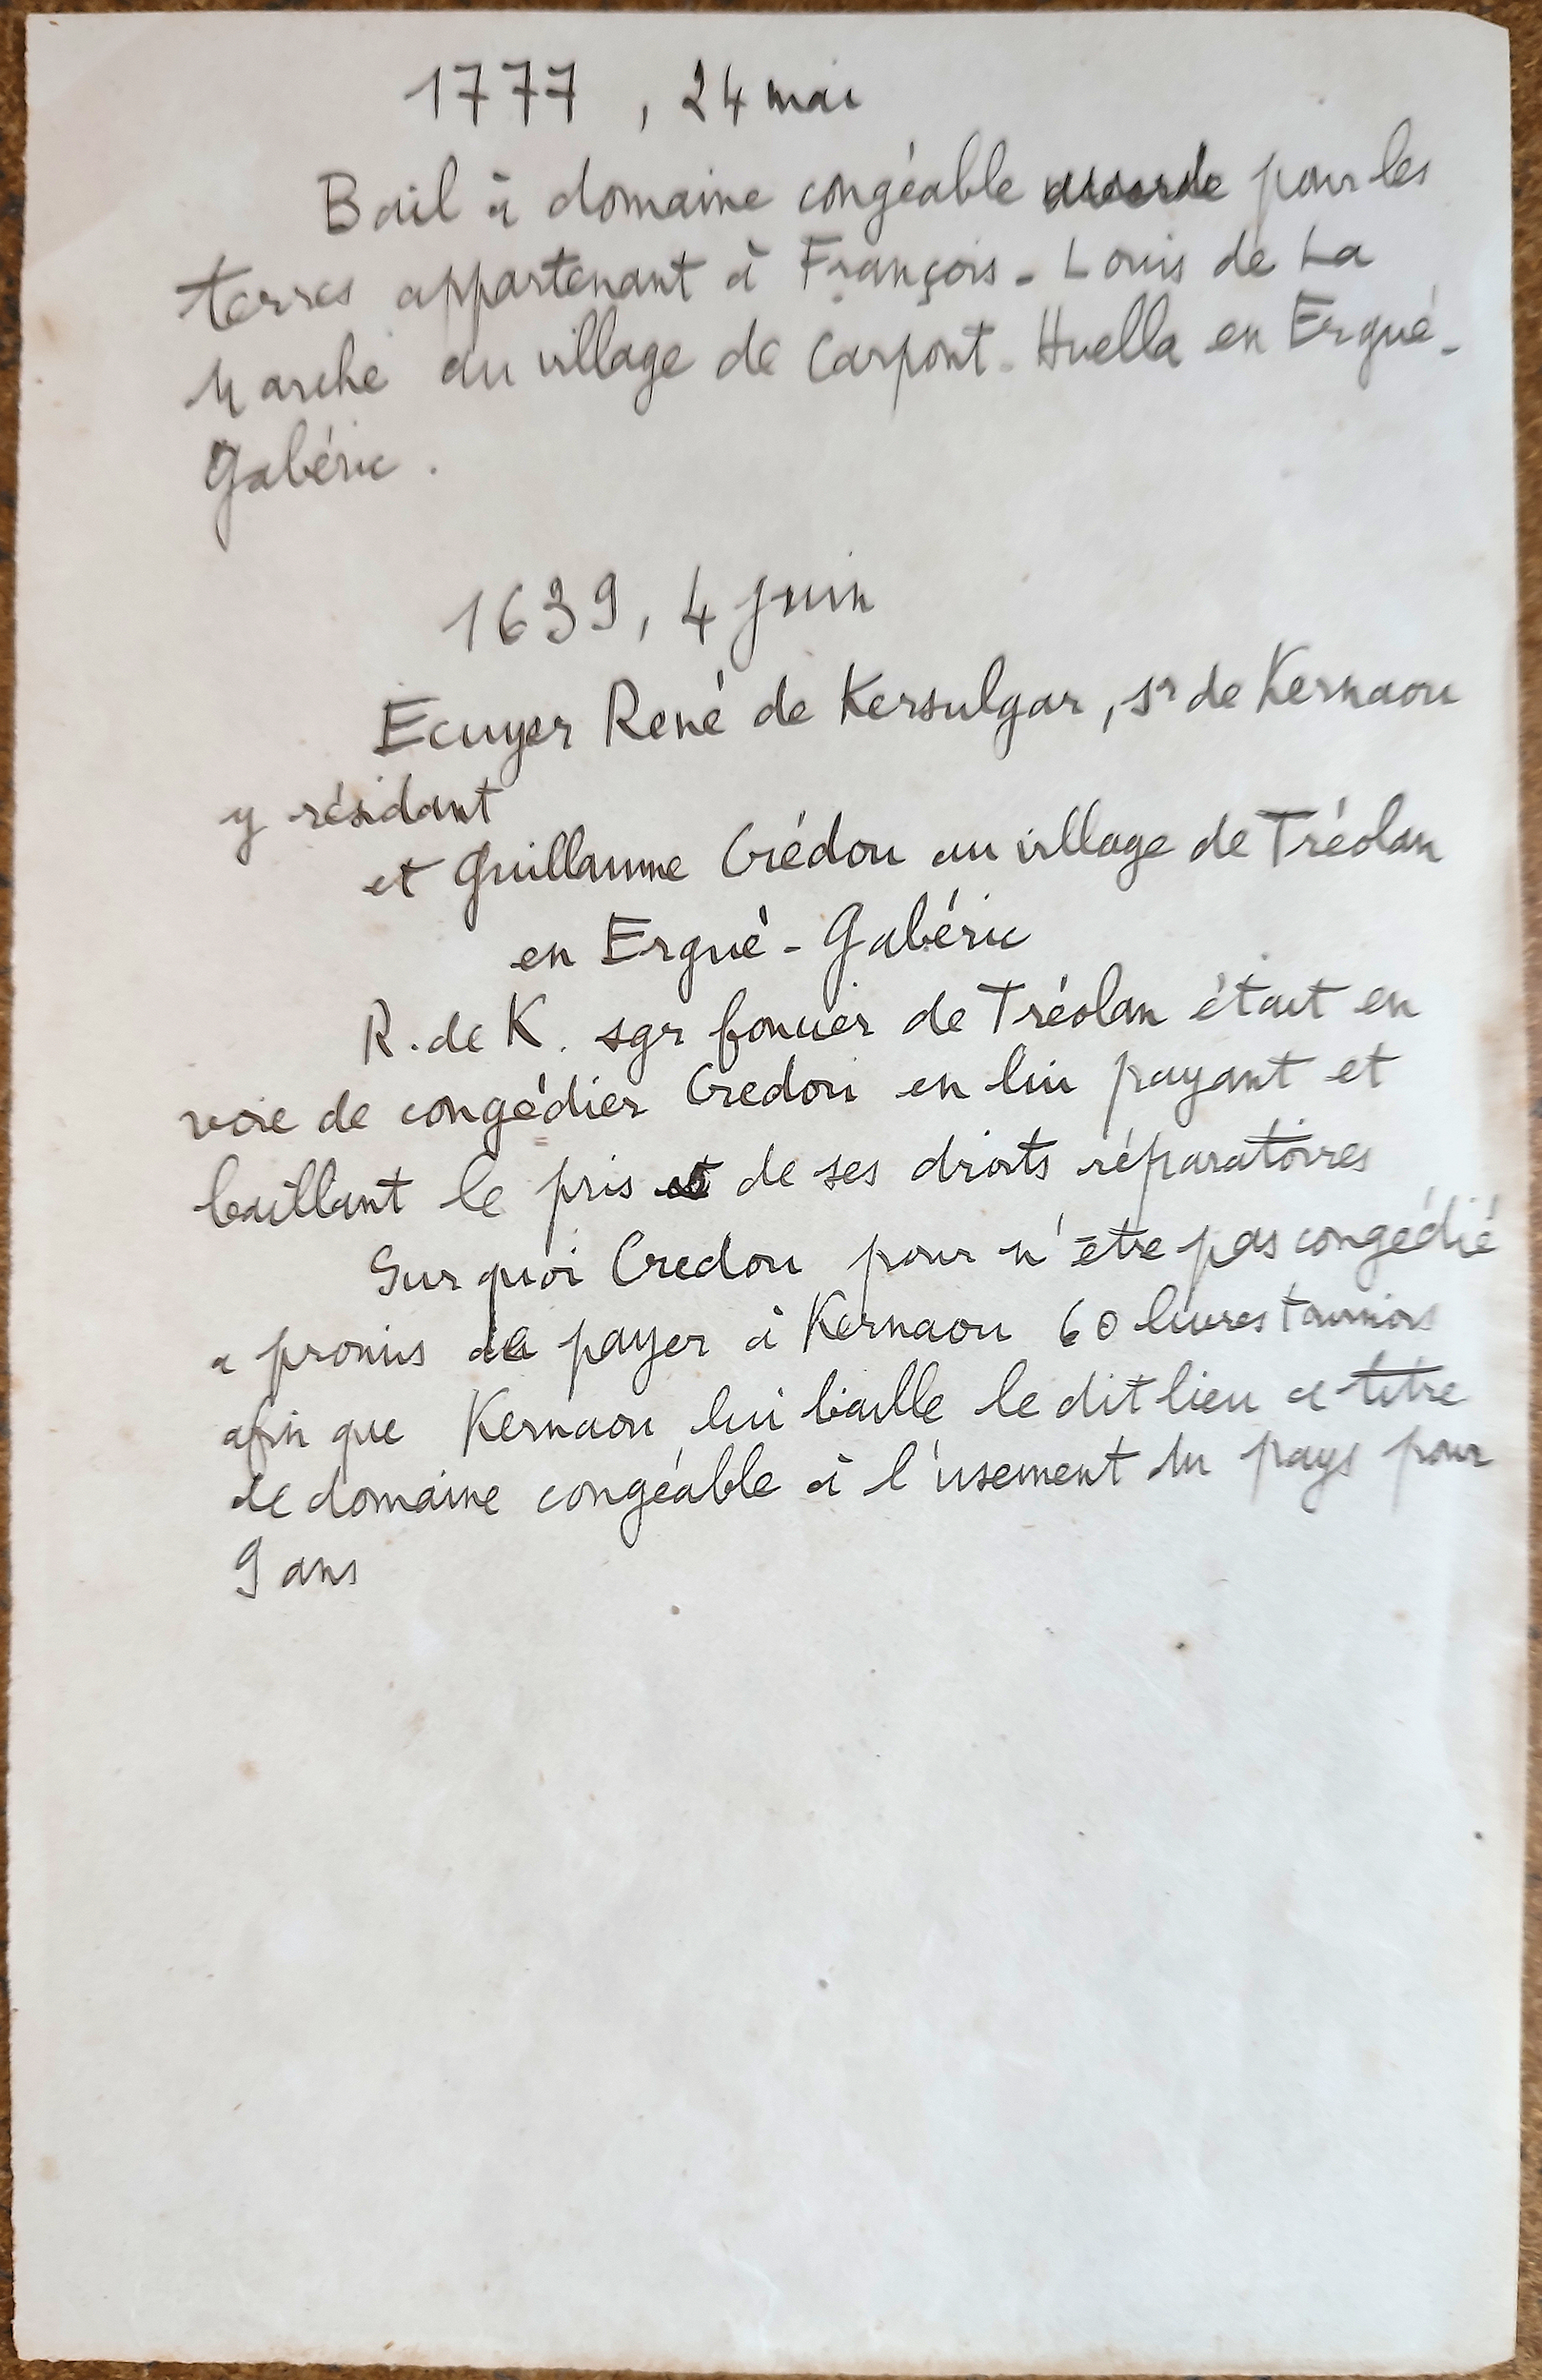 1777, 24 mai
Bail à domaine congéable accordé pour les
terres appartenant à François-Louis de La
Marche au village de Carpont-Huella en Ergué-
Gabéric.
1639, 4 juin
Ecuyer René de Kersulgar, sr de Kernaou
y résidant
et Guillaume Crédou au village de Tréolan
en Ergué-Gabéric
R. de K. sgr foncier de Tréolan était en
voie de congédier Credou en lui payant et
baillant le pris de ses droits réparatoires
Sur quoi Credou pour n'être pas congédié
a promis de payer à Kernaou 60 livres tournois
afin que Kernaou lui baille le dit lieu a titre
de domaine congéable à l'usement du pays pour
9 ans